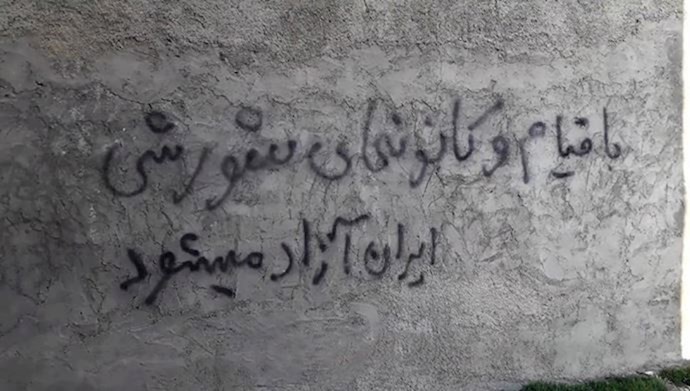 با قیام و کانونهای شورشی
ایران آزاد میشود